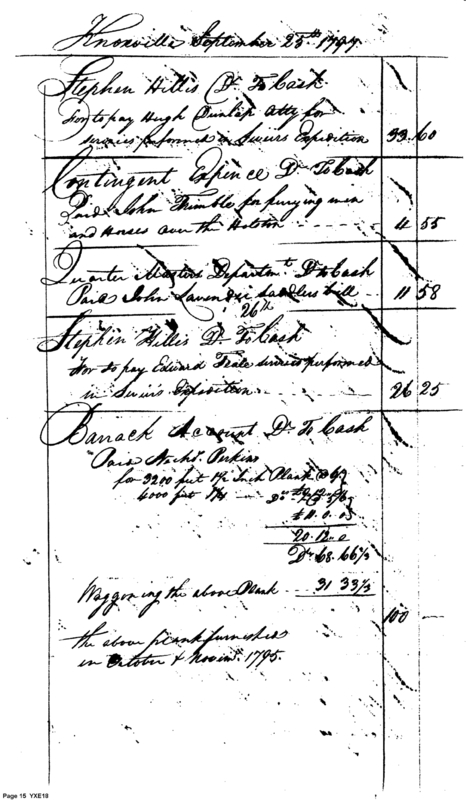 Knoxville September 25th 1797
Stephen Hillis Dr To Cash
For to pay Hugh Dunlap Atty for
services performed in Seviers Expedition 33.60
Contingent Expence Dr To Cash
Paid John Trimble for ferrying men
and Horses over the Holston 4 55
Quarter Masters Departmt Dr to Cash
Paid John Lavender Saddlers bill 11 58
26th
Stephen Hillis Dr To Cash
For to pay Edward Teale services performed
in Seviers Expedition 26 25
Barrack Account Dr To Cash
Paid Perkins
for 3200 feet 1½ Inch Plank @
4000 feet Do
£11.0.0
20.12.0
Dr 68.66⅔
Waggoning the above Plank 31 33⅓
100
the above plank furnished
in October & Novemr 1795.
Page 15 YXE18